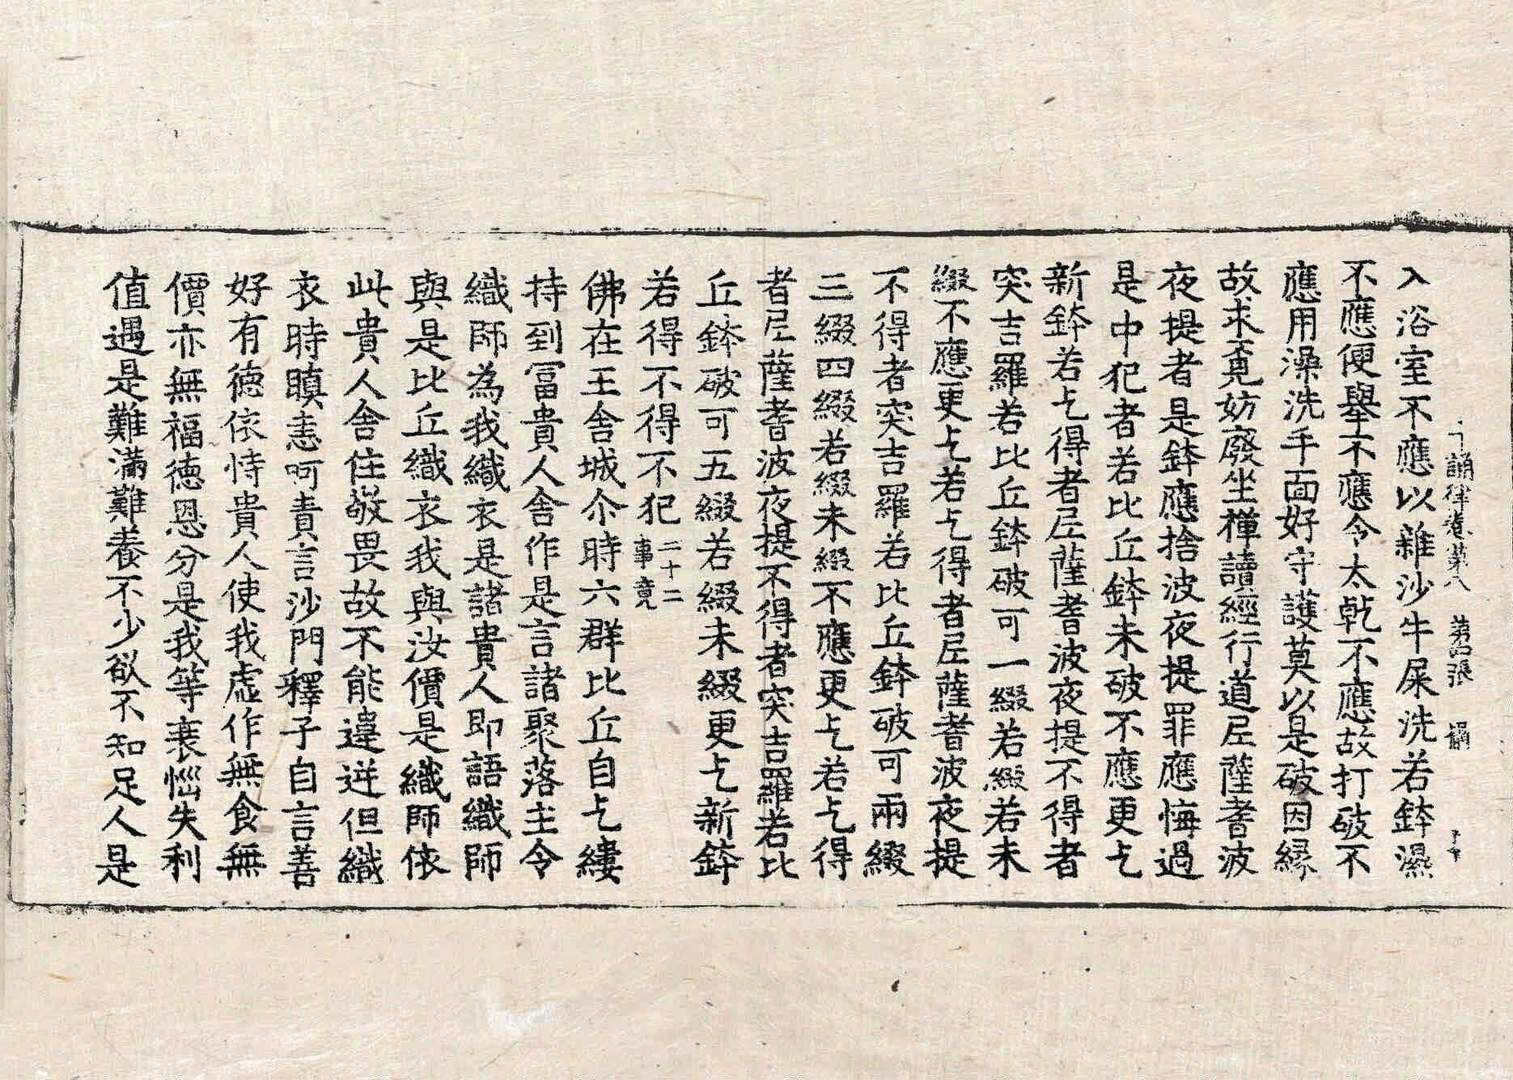 十誦律卷第八　第四張　攝
入浴室不應以雜沙牛屎洗若鉢濕
不應便擧不應令太乾不應故打破不
應用澡洗手面好守護莫以是破因緣
故求覔妨廢坐禪讀經行道尼薩耆波
夜提者是鉢應捨波夜提罪應悔過
是中犯者若比丘鉢未破不應更乞
新鉢若乞得者尼薩耆波夜提不得者
突吉羅若比丘鉢破可一綴若綴若未
綴不應更乞若乞得者尼薩耆波夜提
不得者突吉羅若比丘鉢破可兩綴
三綴四綴若綴未綴不應更乞若乞得
者尼薩耆波夜提不得者突吉羅若比
丘鉢破可五綴若綴未綴更乞新鉢
若得不得不犯二十二事竟
佛在王舍城尒時六群比丘自乞縷
持到冨貴人舍作是言諸聚落主令
織師為我織衣是諸貴人即語織師
與是比丘織衣我與汝價是織師依
此貴人舍住敬畏故不能違逆但織
衣時瞋恚呵責言沙門釋子自言善
好有德依恃貴人使我虛作無食無
價亦無福德恩分是我等衰惱失利
值遇是難滿難養不少欲不知足人是